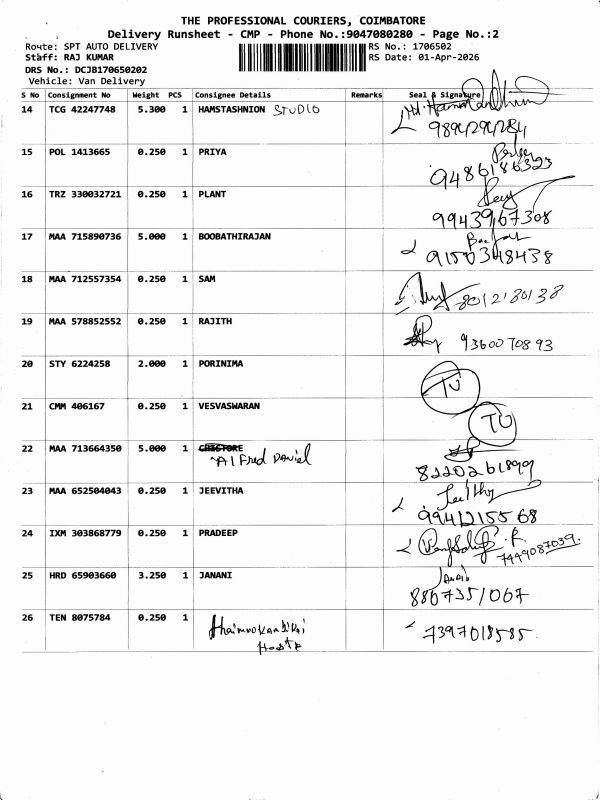 THE PROFESSIONAL COURIERS, COIMBATORE
Delivery Runsheet - CMP - Phone No.:9047080280 - Page No.:2
Route: SPT AUTO DELIVERY RS No.: 1706502
Staff: RAJ KUMAR RS Date: 01-Apr-2026
DRS No.: DCJB170650202
Vehicle: Van Delivery
S No Consignment No Weight PCS Consignee Details Remarks Seal & Signature
14 TCG 42247748 5.300 1 HAMSTASHNION STUDIO
15 POL 1413665 0.250 1 PRIYA
9486186323
16 TRZ 330032721 0.250 1 PLANT
9943967308
17 MAA 715890736 5.000 1 BOOBATHIRAJAN
9150348438
18 MAA 712557354 0.250 1 SAM
8012180138
19 MAA 578852552 0.250 1 RAJITH
9360070893
20 STY 6224258 2.000 1 PORINIMA
TU
21 CMM 406167 0.250 1 VESVASWARAN
TU
22 MAA 713664350 5.000 1 CHISTORE
Alfred Daniel
8220261899
23 MAA 652504043 0.250 1 JEEVITHA
9941215568
24 IXM 303868779 0.250 1 PRADEEP
7449087039
25 HRD 65903660 3.250 1 JANANI
Janani
8867351067
26 TEN 8075784 0.250 1
7397018585